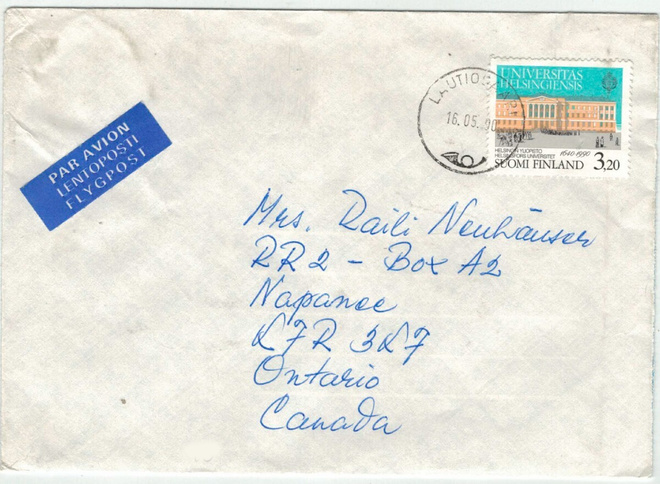 PAR AVION
LENTOPOSTI
FLYGPOST
16.05.90
UNIVERSITAS
HELSINGIENSIS
HELSINGIN YLIOPISTO
HELSINGFORS UNIVERSITET
1640-1990
SUOMI FINLAND 3,20
Mrs. Raili Neuhäuser
RR2 - Box A2
Napanee
K7R 3K7
Ontario
Canada